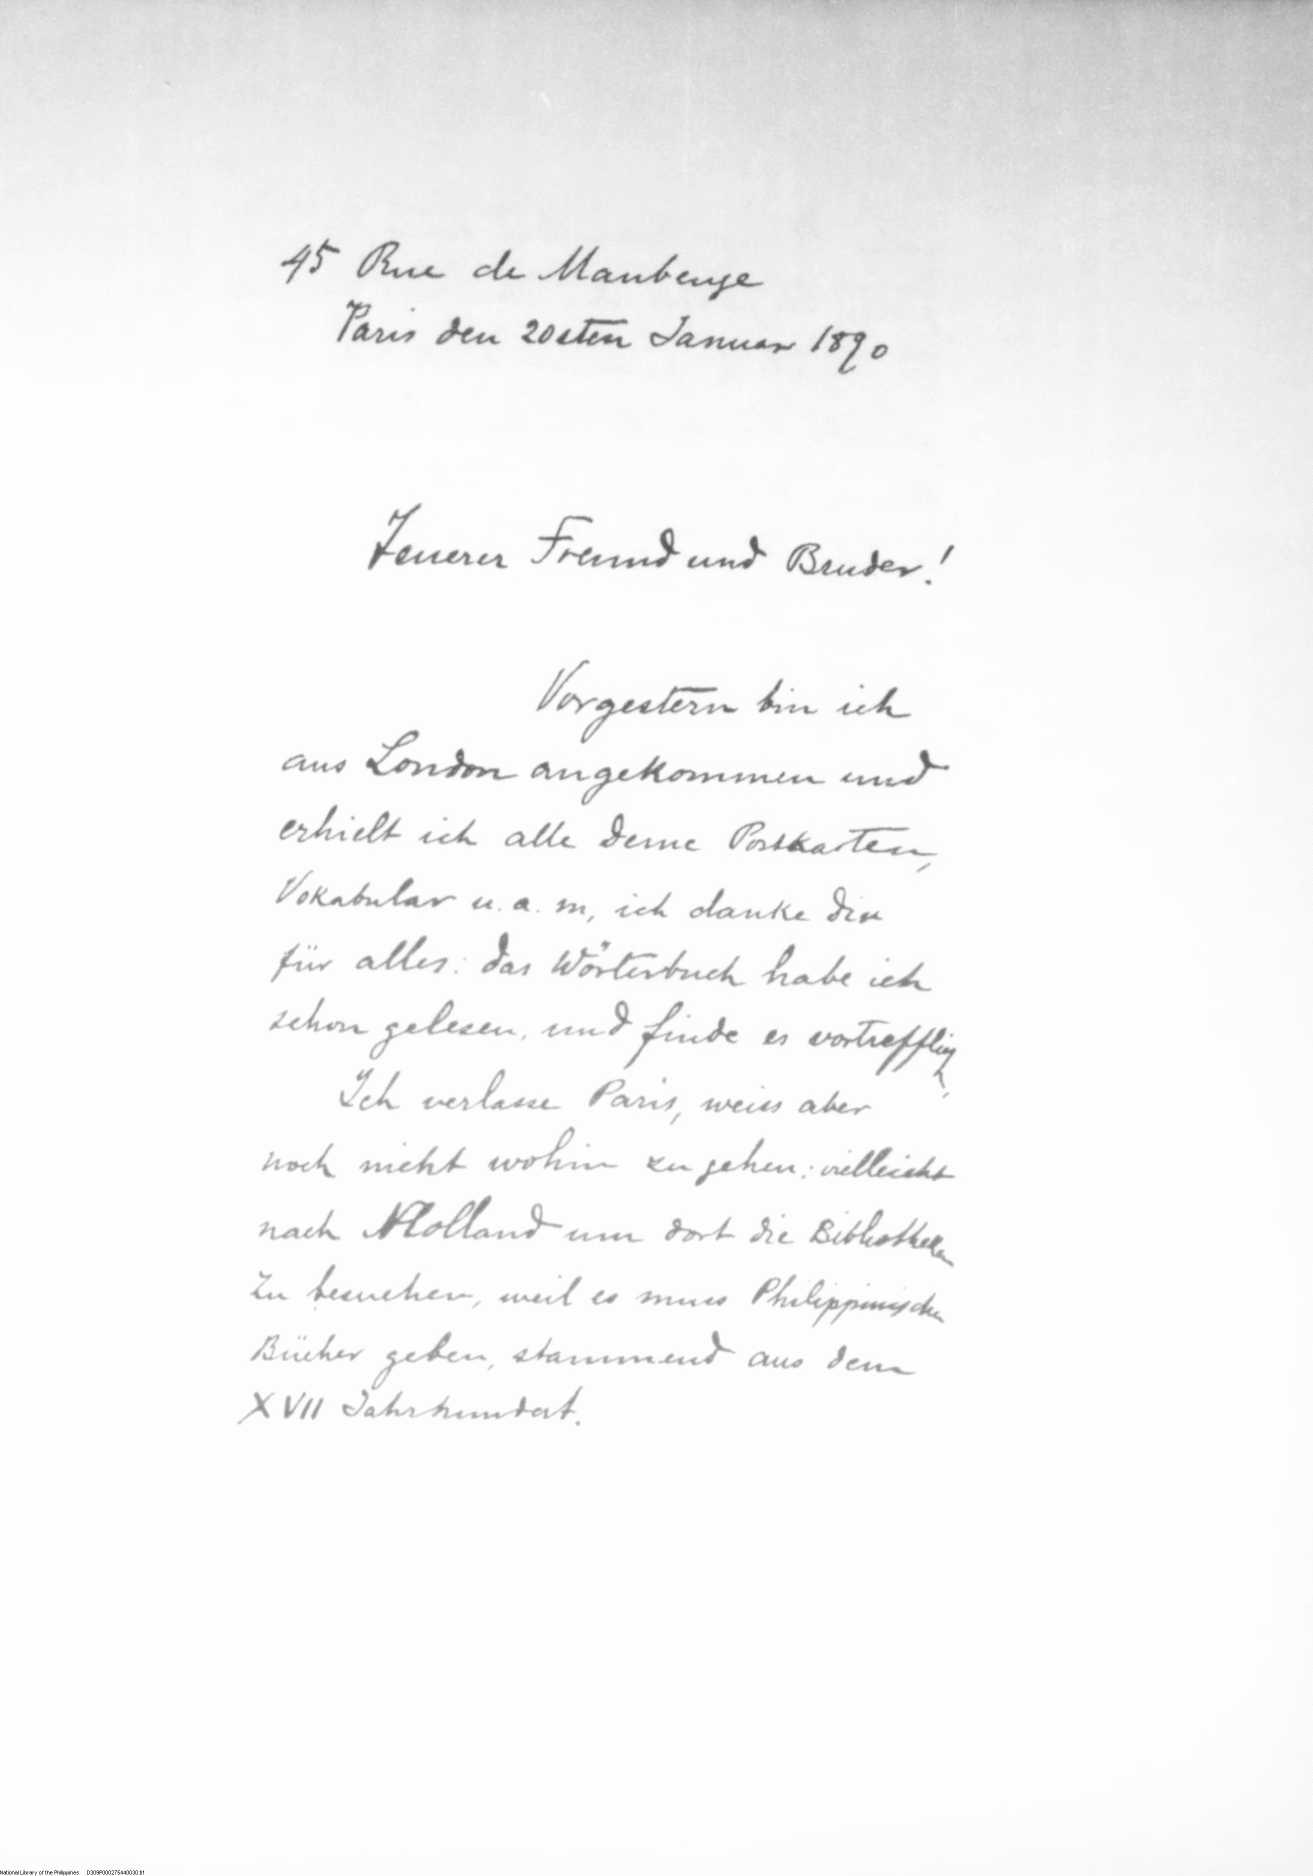 45 Rue de Maubeuge
Paris den 20sten Januar 1890
Teuerer Freund und Bruder!
Vorgestern bin ich
aus London angekommen und
erhielt ich alle deine Postkarten,
Vokabular u. a. m, ich danke dir
für alles: das Wörterbuch habe ich
schon gelesen, und finde es vortrefflich,
Ich verlasse Paris, weiss aber
noch nicht wohin zu gehen: vielleicht
nach Holland um dort die Bibliotheken
zu besuchen, weil es muss Philippinische
Bücher geben, stammend aus dem
XVII Jahrhundert.
National Library of the Philippines